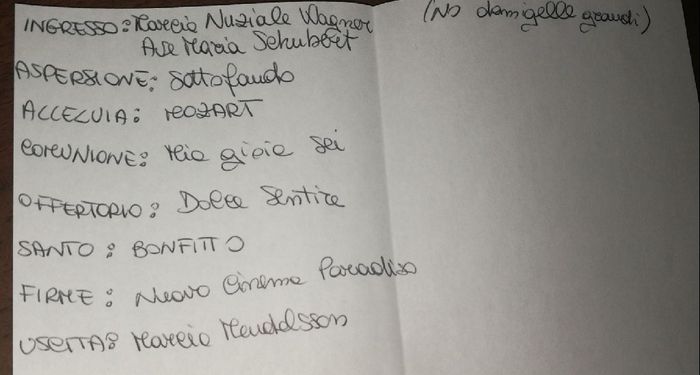 INGRESSO: Marcia Nuziale Wagner
Ave Maria Schubert
(No damigelle grandi)
ASPERSIONE: Sottofondo
ALLELUIA: MOZART
COMUNIONE: Mia gioia sei
OFFERTORIO: Dolce Sentire
SANTO: BONFITTO
FIRME: Nuovo Cinema Paradiso
USCITA: Marcia Mendelsson